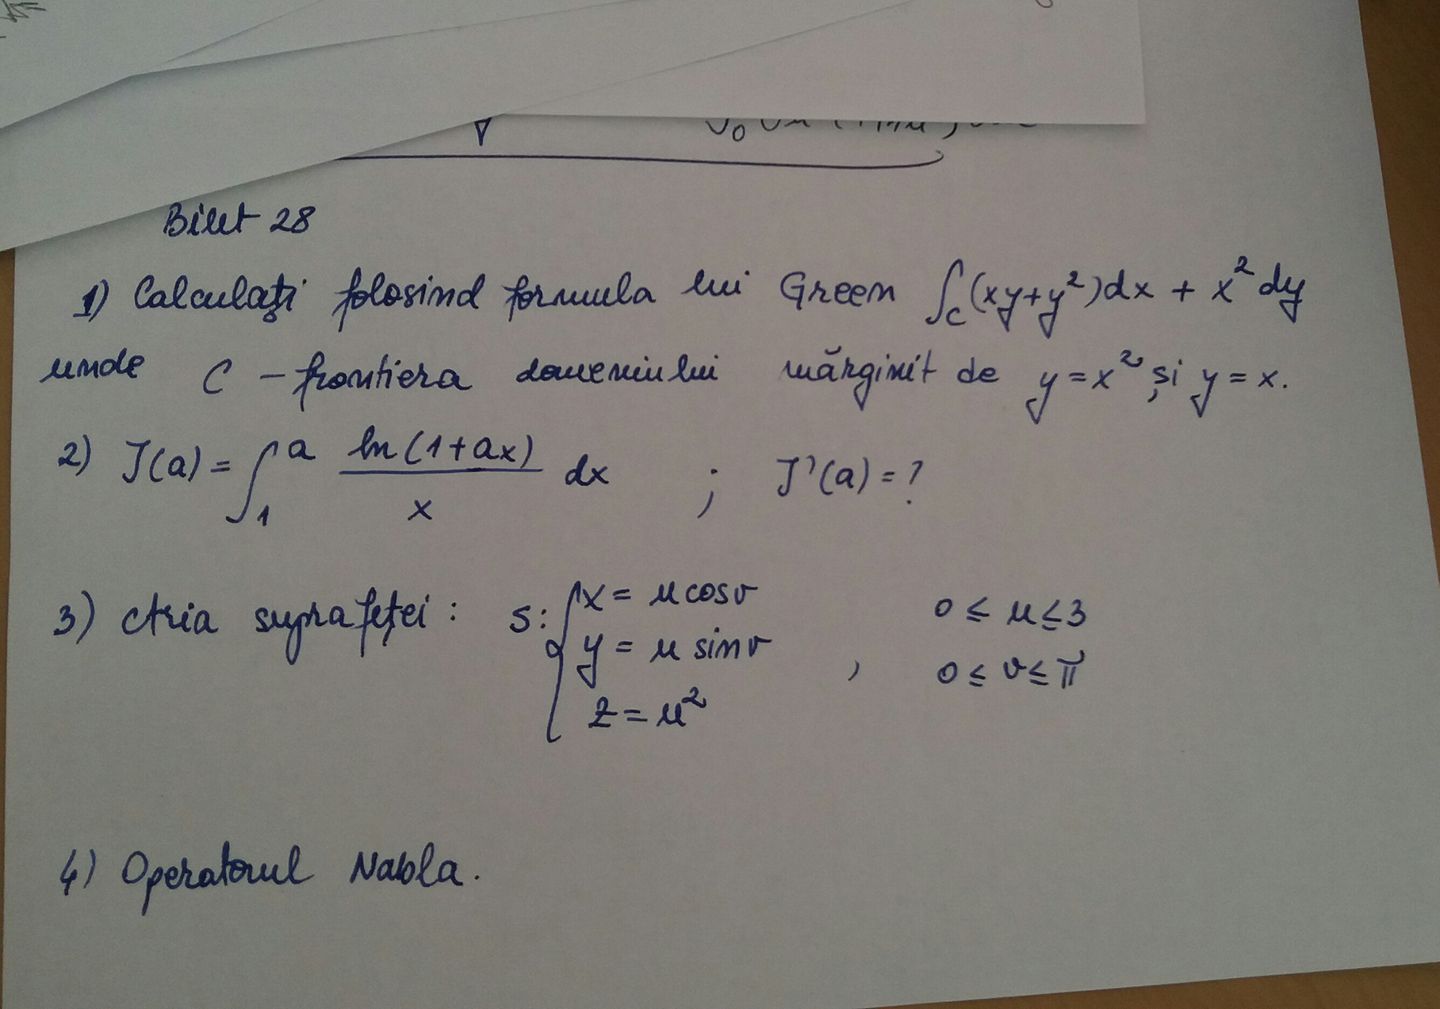 Bilet 28
1) Calculați folosind formula lui Green ∫_C (xy+y²)dx + x² dy
unde C - frontiera domeniului mărginit de y = x² și y = x.
2) J(a) = ∫_1^a ln(1+ax)/x dx ; J'(a) = ?
3) Aria suprafeței: S: { x = u cos v , 0 ≤ u ≤ 3
y = u sin v , 0 ≤ v ≤ π
z = u²
4) Operatorul Nabla.